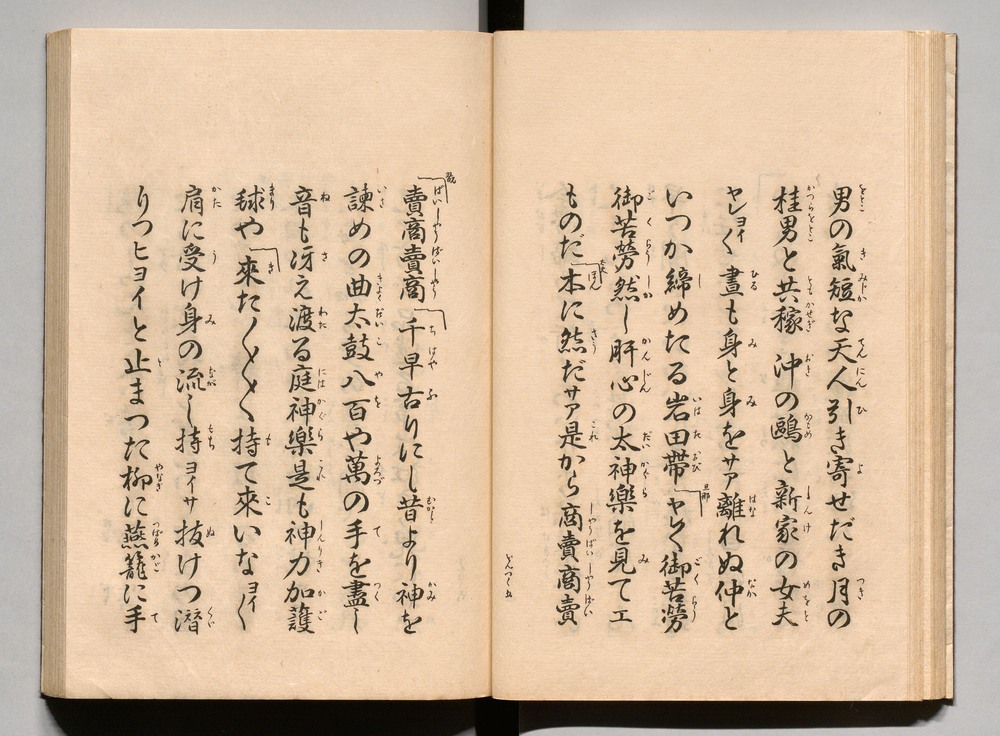 男の氣短な天人引き寄せだき月の
桂男と共稼 沖の鷗と新家の女夫
ヤレヨイ〱 晝も身と身をサア離れぬ仲と
いつか締めたる岩田帶 旦那 ヤレ〱御苦勞
御苦勞然し肝心の太神樂を見てエ
ものだ 本に然だサア是から商賣商賣
賣商賣商 千早古りにし昔より神を
諫めの曲太鼓八百や萬の手を盡し
音も冴え渡る庭神樂是も神力加護
毬や 來た〱〱〱持て來いな ヨイ〱
肩に受け身の流し持 ヨイサ 抜けつ潛
りつヒヨイと止まつた柳に燕籠に手